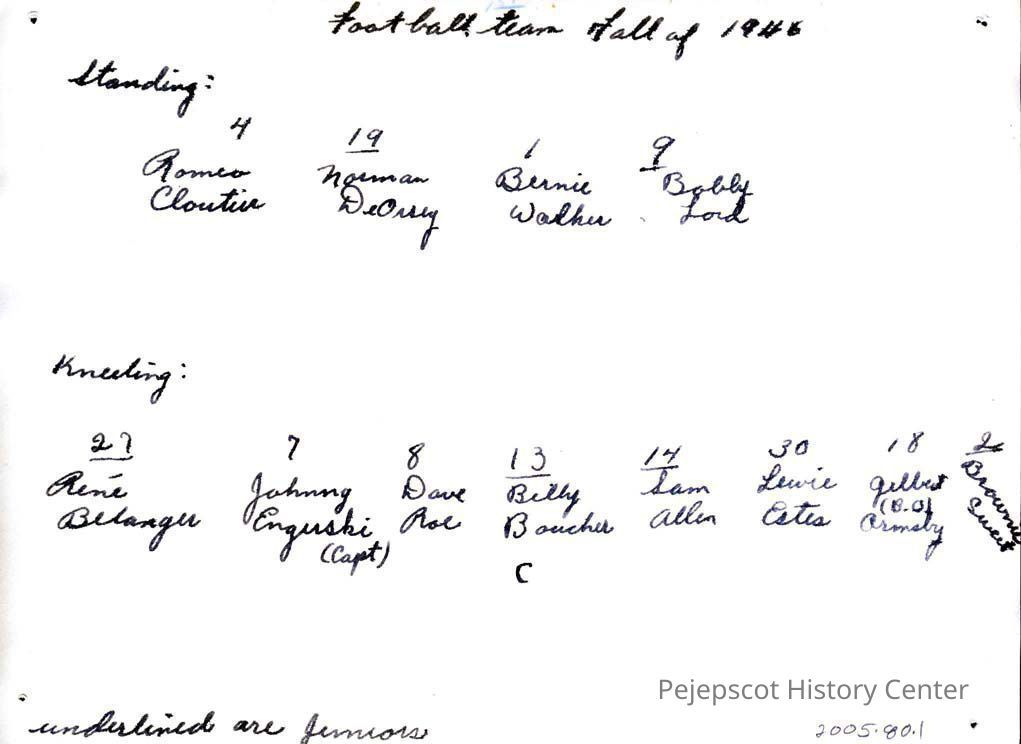 Football team Fall of 1946
Standing:
4 19 1 9
Romeo Norman Bernie Bobby
Cloutier DeOrsey Walker Lord
Kneeling:
27 7 8 13 14 30 18 2
René Johnny Dave Billy Sam Lewie Gilbert Brownie
Belanger Engerski Roe Boucher Allen Estes (B.O) Ormsby Sweet
(Capt)
C
Pejepscot History Center
underlined are Juniors
2005.90.1